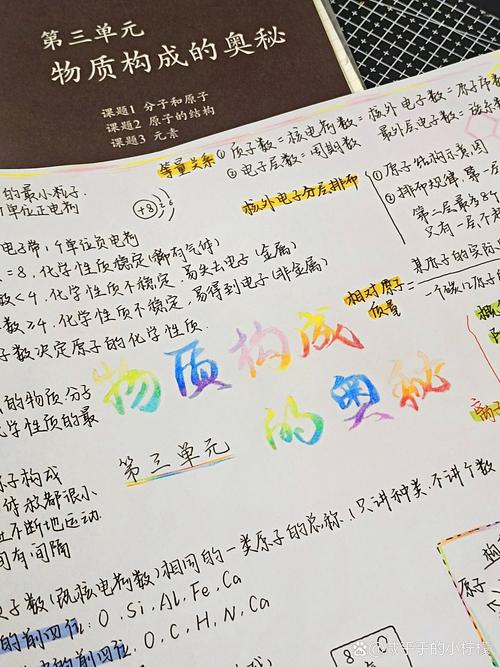 第三单元
物质构成的奥秘
课题1 分子和原子
课题2 原子的结构
课题3 元素
等量关系
①质子数=核电荷数=核外电子数=原子序数
②电子层数=周期数
最外层电子数=
的最小粒子
单位正电荷
+8 2 6
核外电子分层排布
①原子结构示意图
②排布规律:第一层
第二层最多8个
只有一层个
电子带1个单位负电荷
=8,化学性质稳定(稀有气体)
数<4,化学性质不稳定,易失去电子(金属)
数≥4,化学性质不稳定,易得到电子(非金属)
子数决定原子的化学性质
相对原子质量=
某原子的实际
一个碳12原子
物质构成
的奥秘
第三单元
的物质分子
化学性质的最
原子构成
体积都很小
不断地运动
间有间隔
子数(即核电荷数)相同的一类原子的总称,只讲种类,不讲个数
的前四位:O、Si、Al、Fe、Ca
的前四位:O、C、H、N、Ca
原子